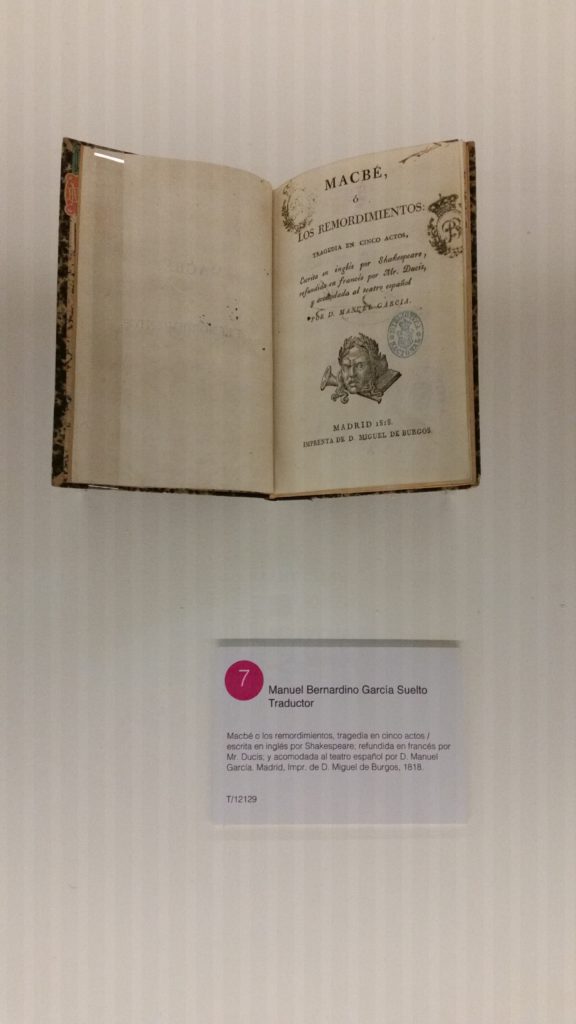 MACBÉ,
ó
LOS REMORDIMIENTOS:
TRAGEDIA EN CINCO ACTOS,
Escrita en inglés por Shakespeare,
refundida en francés por Mr. Ducis,
y acomodada al teatro español
POR D. MANUEL GARCIA.
BIBLIOTECA
NACIONAL
MADRID 1818.
IMPRENTA DE D. MIGUEL DE BURGOS.
7
Manuel Bernardino García Suelto
Traductor
Macbé o los remordimientos, tragedia en cinco actos /
escrita en inglés por Shakespeare; refundida en francés por
Mr. Ducis; y acomodada al teatro español por D. Manuel
García. Madrid, Impr. de D. Miguel de Burgos, 1818.
T/12129